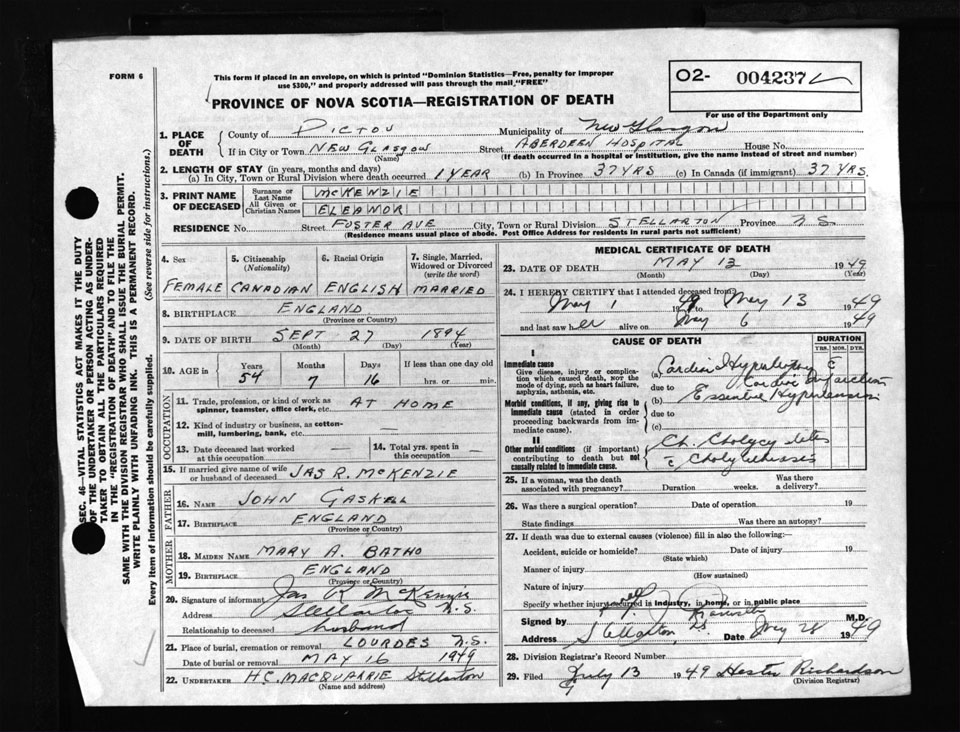 FORM 6
This form if placed in an envelope, on which is printed "Dominion Statistics—Free, penalty for improper
use $300," and properly addressed will pass through the mail "FREE"
PROVINCE OF NOVA SCOTIA—REGISTRATION OF DEATH
O2- 004237
For use of the Department only
SEC. 46—VITAL STATISTICS ACT MAKES IT THE DUTY
OF THE UNDERTAKER OR PERSON ACTING AS UNDER-
TAKER TO OBTAIN ALL THE PARTICULARS REQUIRED
IN THE "REGISTRATION OF DEATH" AND TO FILE THE
SAME WITH THE DIVISION REGISTRAR WHO SHALL ISSUE THE BURIAL PERMIT.
WRITE PLAINLY WITH UNFADING INK. THIS IS A PERMANENT RECORD.
Every item of information should be carefully supplied. (See reverse side for instructions.)
1. PLACE OF DEATH County of PICTOU Municipality of New Glasgow
If in City or Town NEW GLASGOW Street ABERDEEN HOSPITAL House No.
(Name) (If death occurred in a hospital or institution, give the name instead of street and number)
2. LENGTH OF STAY (in years, months and days)
(a) In City, Town or Rural Division where death occurred 1 YEAR (b) In Province 37 YRS (c) In Canada (if immigrant) 37 YRS.
3. PRINT NAME OF DECEASED Surname or Last Name McKENZIE
All Given or Christian Names ELEANOR
RESIDENCE No. Street FOSTER AVE City, Town or Rural Division STELLARTON Province N.S.
(Residence means usual place of abode. Post Office Address for residents in rural parts not sufficient)
4. Sex 5. Citizenship (Nationality) 6. Racial Origin 7. Single, Married, Widowed or Divorced (write the word)
FEMALE CANADIAN ENGLISH MARRIED
8. BIRTHPLACE ENGLAND
(Province or Country)
9. DATE OF BIRTH SEPT 27 1894
(Month) (Day) (Year)
10. AGE in Years Months Days If less than one day old
54 7 16 hrs. or min.
OCCUPATION
11. Trade, profession or kind of work as spinner, teamster, office clerk, etc. AT HOME
12. Kind of industry or business, as cotton-mill, lumbering, bank, etc.
13. Date deceased last worked at this occupation 14. Total yrs. spent in this occupation
15. If married give name of wife or husband of deceased JAS R. McKENZIE
FATHER
16. NAME JOHN GASKELL
17. BIRTHPLACE ENGLAND
(Province or Country)
MOTHER
18. MAIDEN NAME MARY A. BATHO
19. BIRTHPLACE ENGLAND
(Province or Country)
20. Signature of informant Jas R McKenzie
Address Stellarton N.S.
Relationship to deceased husband
21. Place of burial, cremation or removal LOURDES N.S.
Date of burial or removal MAY 16 1949
22. UNDERTAKER H.C. MACQUARRIE Stellarton
(Name and address)
MEDICAL CERTIFICATE OF DEATH
23. DATE OF DEATH MAY 13 1949
(Month) (Day) (Year)
24. I HEREBY CERTIFY that I attended deceased from
May 1 1949 May 13 1949
and last saw her alive on May 6 1949
CAUSE OF DEATH DURATION
YRS. MOS. DYS.
I
Immediate cause
Give disease, injury or complication which caused death, NOT the mode of dying, such as heart failure, asphyxia, asthenia, etc.
(a) Cardiac Hypertrophy c
due to Cardiac Infarction
Morbid conditions, if any, giving rise to immediate cause (stated in order proceeding backwards from immediate cause).
(b) Essential Hypertension
due to
(c)
II
Other morbid conditions (if important) contributing to death but not causally related to immediate cause.
Ch. Cholycystitis
c Cholylithiasis
25. If a woman, was the death associated with pregnancy? Duration weeks. Was there a delivery?
26. Was there a surgical operation? Date of operation 19
State findings Was there an autopsy?
27. If death was due to external causes (violence) fill in also the following:—
Accident, suicide or homicide? Date of injury 19
(State which)
Manner of injury
(How sustained)
Nature of injury
Specify whether injury occurred in industry, in home, or in public place
Signed by M.D.
Address Stellarton, NS Date May 28 1949
28. Division Registrar's Record Number
29. Filed July 13 1949 Hester Richardson
(Division Registrar)